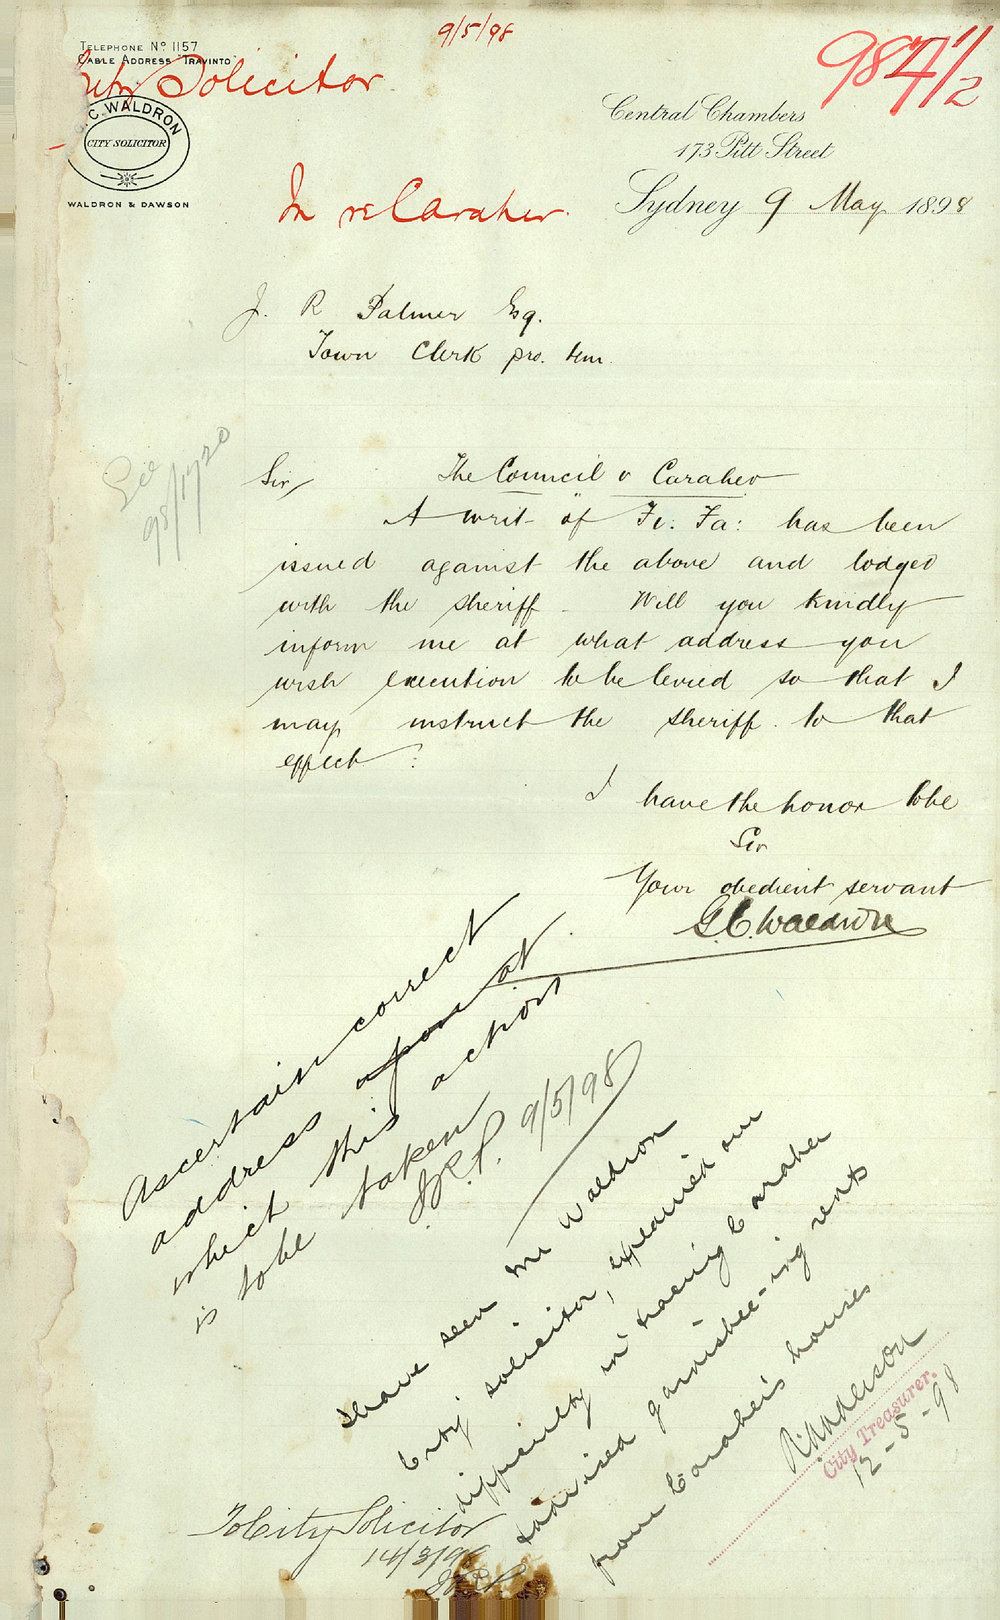 9/5/98
984 1/2
TELEPHONE No 1157
CABLE ADDRESS "TRAVINTO"
City Solicitor
G.C. WALDRON
CITY SOLICITOR
WALDRON & DAWSON
Central Chambers
173 Pitt Street
Sydney 9 May 1898
In re Caraher.
J. R Palmer Esq.
Town Clerk pro. tem.
See
98/1720
Sir, The Council v Caraher
A writ of Fi: Fa: has been
issued against the above and lodged
with the sheriff. Will you kindly
inform me at what address you
wish execution to be levied so that I
may instruct the sheriff to that
effect.
I have the honor to be
Sir
Your obedient servant
G.C. Waldron
Ascertain correct
address upon at
which this action
is to be taken
J.R.P. 9/5/98
I have seen Mr Waldron
City solicitor, explained our
difficulty in tracing Caraher
& advised garnishee-ing rents
from Caraher's houses
R. Anderson
City Treasurer.
12-5-98
To City Solicitor
14/5/98
JRP